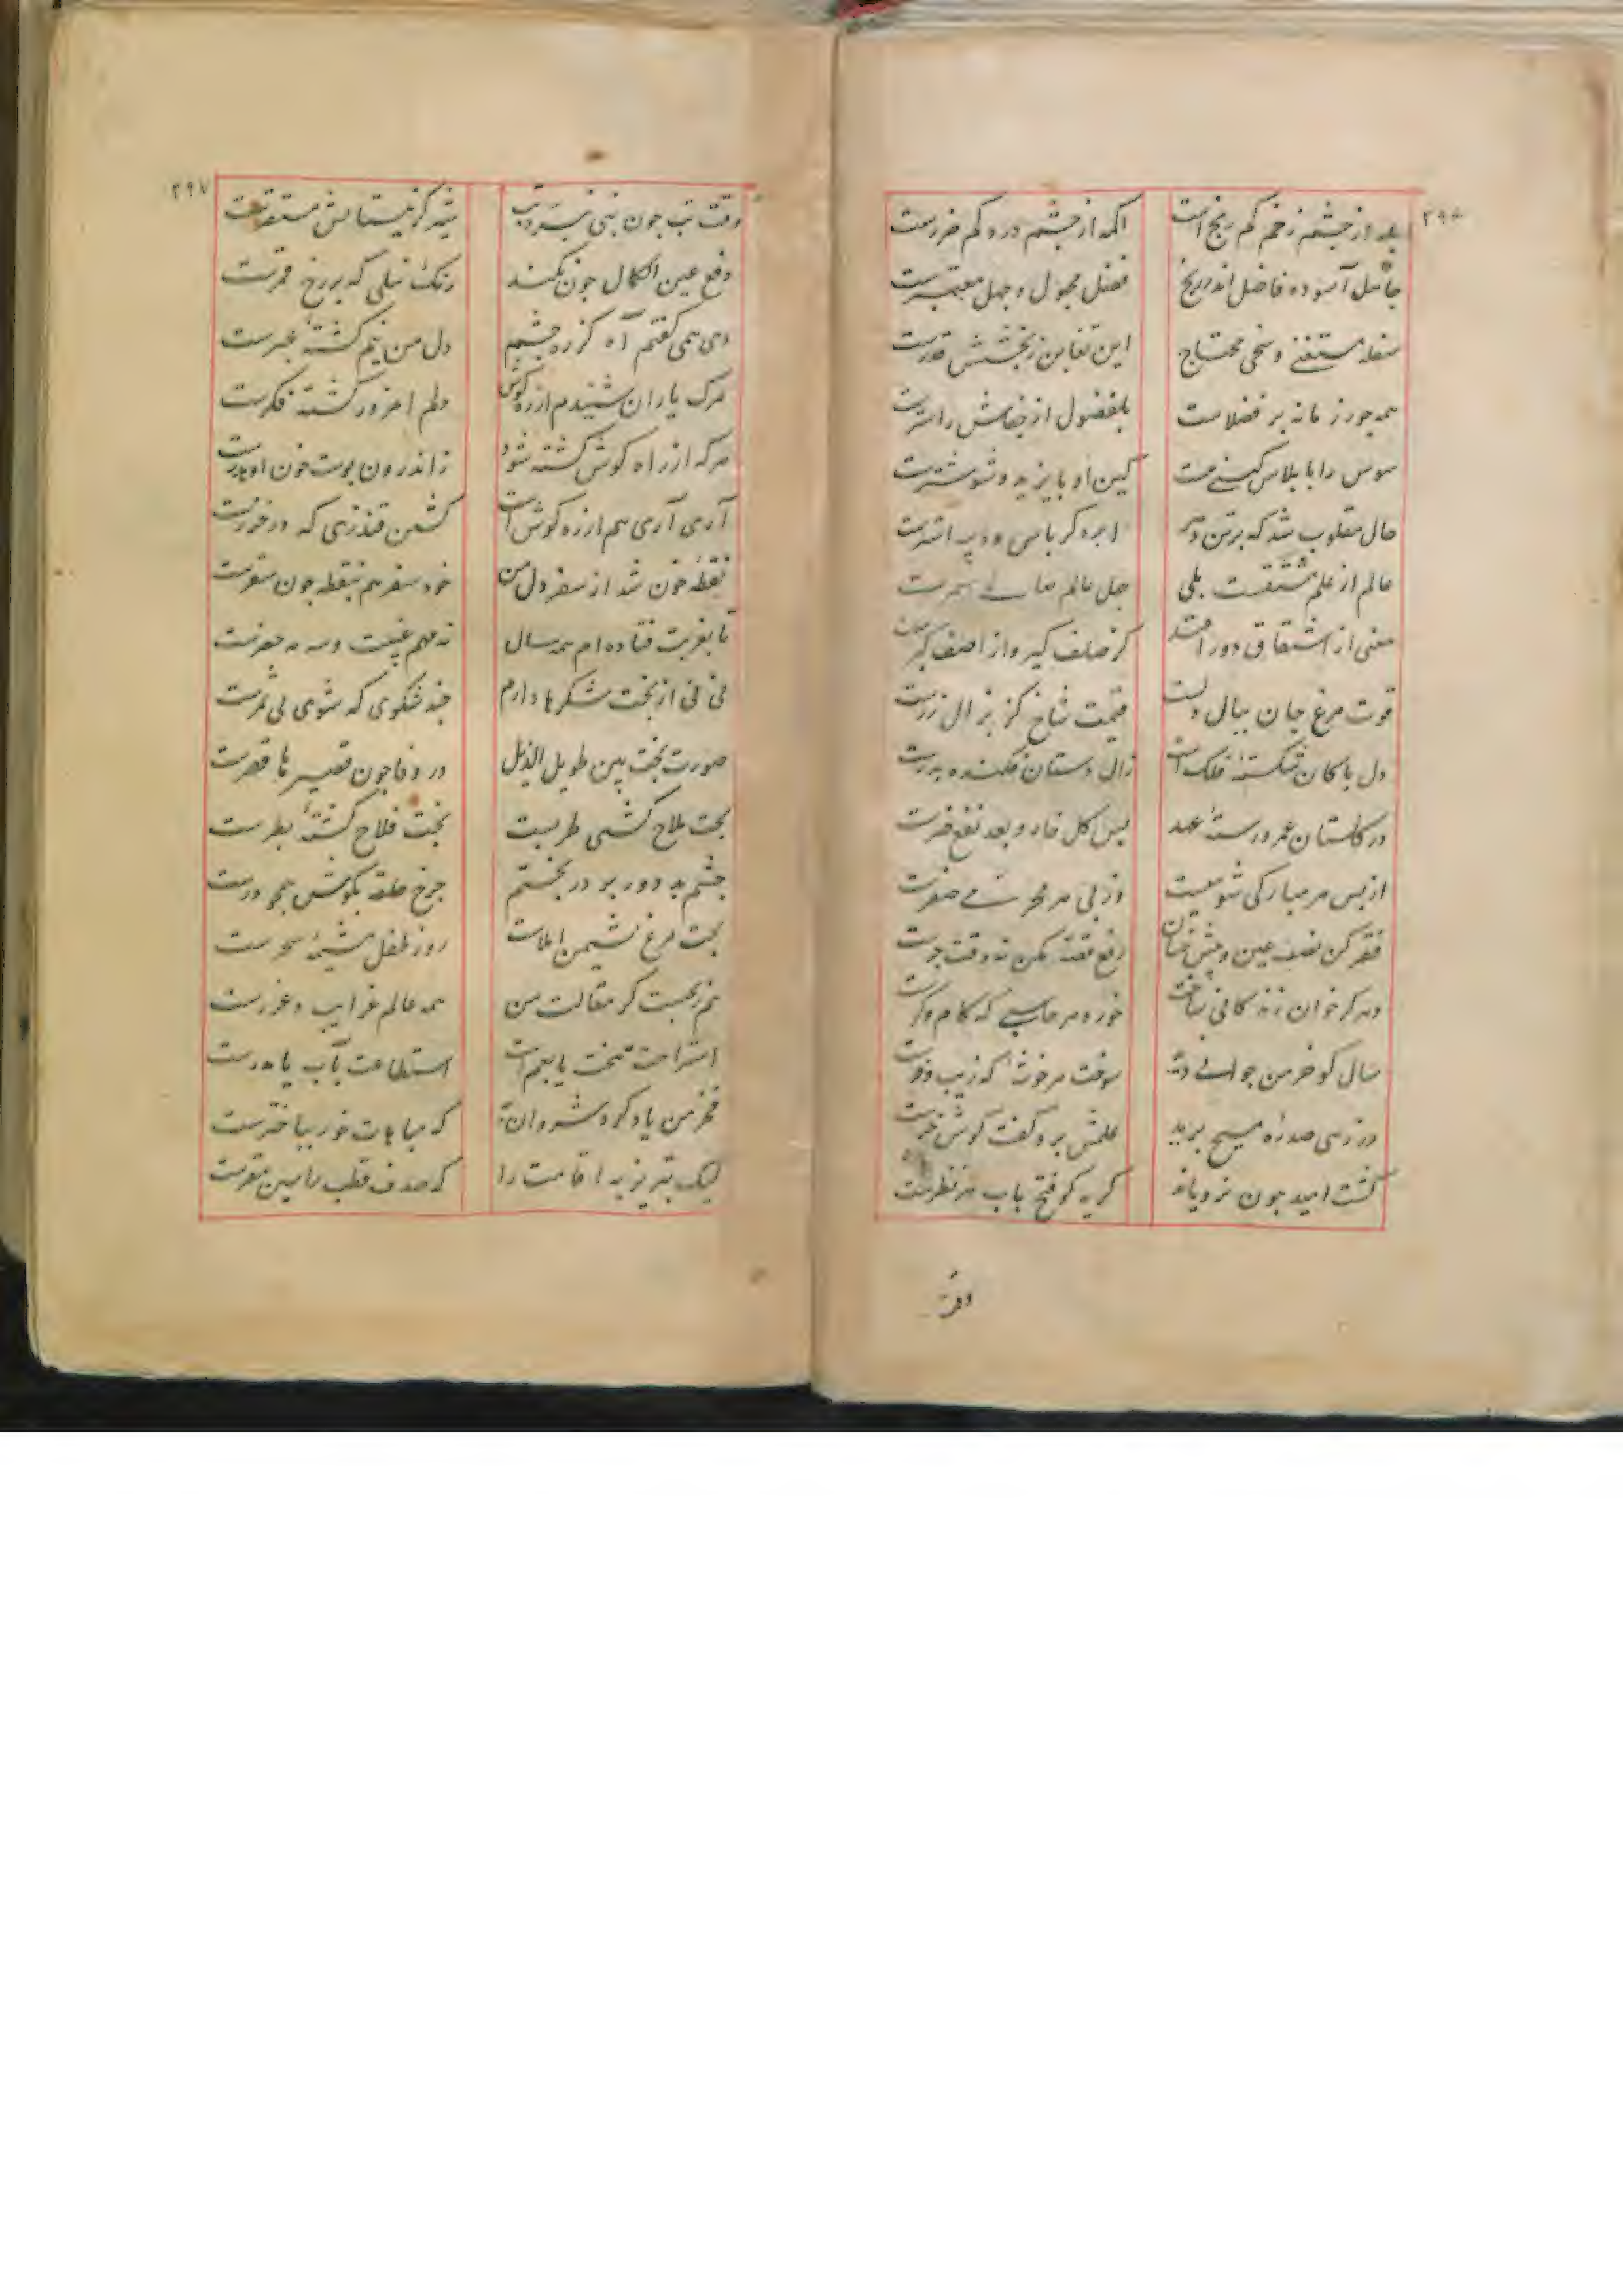 ۲۹۶
بله از چشم زخم کم رنج است اکمه از چشم درد کم ضررست
جاهل آسوده فاضل اندر رنج فضل مجهول و جهل معتبرست
سفله مستغنی و سخی محتاج این تغابن ز بخشش قدرست
همه جور زمانه بر فضلاست بلفضول از جفاش
سوس را با پلاس کینی نیست کین او با پرند و شوشترست
حال مقلوب شد که بر تن دهر ابره کرباس و دیبه استرست
عالم از علم مشتقست بلی جهل عالم
معنی از اشتقاق دور افتد کز صلف کبر و از اصف کبرست
قوت مرغ جان ببال دلست قیمت شاخ کز بزال زرست
دل پاکان شکسته فلک است زال دستان فکنده پدرست
در کلستان عمر و رسته عهد پس کل خار و بعد نفع ضرست
از پس هر مبارکی شومیست وز پی هر محرمی صفرست
فقر کن نصب عین و پیش خسان رفع قصه مکن نه وقت جرست
دهر کر خوان زندکانی ساخت خورد هر جاشنی که کام و کرست
سال کو خرمن جوانی دید سوخت هر خوشه که زیب و فرست
درزی صدره مسیح برید علمش برد و کفت کوش خرست
کشت امید چون نرویاند کریه کو فتح باب هر نظرست
وقت
۲۹۷
وقت تب چون به نی نبرد تب شیر کز نیستانش مستقرست
دفع عین الکمال چون نکند رنک نیلی که بر رخ قمرست
دی همی کفتم آه کز ره چشم دل من نیم کشته عبرست
مرک یاران شنیدم از ره کوش دلم امروز کشته فکرست
هر که از راه کوش کشته شود زاندرون پوست خون او هدرست
آری آری هم از ره کوش است کشتن قندزی که در خزرست
نقطه خون شد از سفر دل من خود سفر هم بنقطه چون سقرست
تا بغربت فتاده‌ام همه سال نه مهم غیبت و سه مه حضرست
نی نی از بخت شکرها دارم چند شکوی که شوی بی ثمرست
صورت بخت من طویل الذیل در وفا چون قصیر با قصرست
بخت ملاح کشتی طربست بخت فلاح کشته بطرست
چشم بد دور بر در بختم چرخ حلقه بکوش همچو درست
بخت مرغ نشیمن املاست روز طفل مشیمه سحرست
هم ز بخست کز مقالت من همه عالم غرایب و غررست
استراحت ببخت یا بنعم است استطابت بآب یا مدرست
فخر من یاد کرد شروان به که مباهات خور بباخترست
لیک تبریز به اقامت را که صدف قطب را بهین مقرست